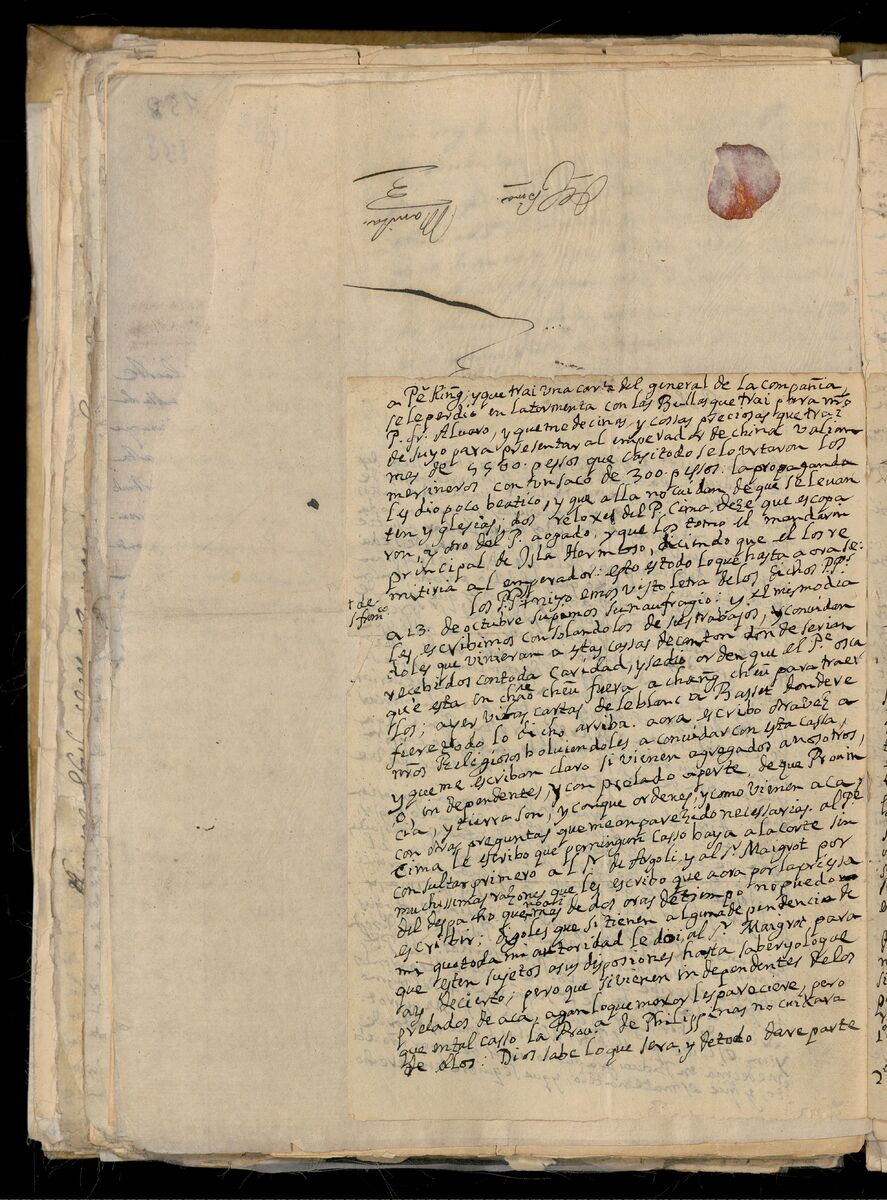 Manila.
3
a Pe. King; y que trai una carta del general de la Compañia,
se le perdio en la tormenta con las Bullas que trai para nro
P. fr. Alvaro, y que medecinas, y cossas preciosas que trai
de suyo para presentar al emperador de china valian
mas de 5560. pessos que casi todo se lo urtaron los
merineros con un saco de 300. pessos: la propaganda
les dio poco beatico, y que alla no cuidan de que se levan
ten yglesias; dos reloxes del P. Cima, deze que escapa
ron, y otro del P. aogado, y que los tomo el mandarin
principal de Isla Hermoso, diciendo que el los re
mitiria al emperador: esto es todo lo que hasta aora se:
los PPs + ni yo emos visto letra de los dichos PPs.
+ de
s. franco
a 23. de octubre supimos su naufragio: y el mismo dia
les escribimos consolandolos de sus trabajos, y convidan
doles que vinieran a estas cassas de canton donde serian
recebidos con toda Caridad, y se dio orden que el Pe osca
que esta en chao cheu fuera a chang cheu para traer
llos; ayer vi las cartas de leblanc a Basset donde re
fiere todo lo dicho arriba. aora escribo otra vez a
nros Religiosos bolviendoles a convidar con esta cassa,
y que me escriban claro si vienen agregados a nosotros,
o independentes, y con prelado aparte, de que Provin
cia, y tierra son, y con que ordenes, y como vienen aca,
con otras preguntas que me an parezido necessarias. al Pe
Cima le escribo que por ningun casso baya a la corte sin
consultar primero al Sr de Argoli, y al Sr Maigrot por
muchissimas razones que les escribo que aora por la pressa
del despacho que no ai mas de dos oras de tiempo no puedo
escribir; digoles que si tienen alguna dependencia de
mi que toda mi autoridad le doi, al Sr Maigrot para
que esten sujetos a sus disposiones hasta saber yo lo que
ay de cierto; pero que si vienen independentes de los
prelados de aca, agan lo que mexor les pareciere, pero
que en tal casso la Prova de Philippinas no cuidara
de ellos: Dios sabe lo que sera, y de todo dare parte